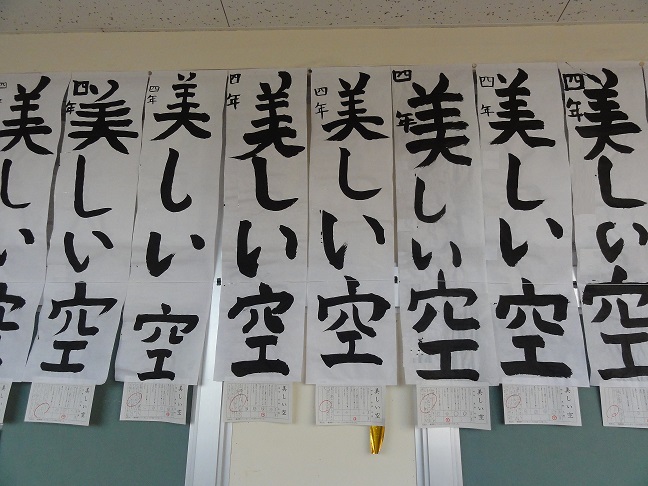 美しい空
四年
美しい空
四年
美しい空
四年
美しい空
四年
美しい空
四年
美しい空
四年
美しい空
四年
美しい空
四年
美しい空
美しい空
美しい空
美しい空
美しい空
美しい空
美しい空